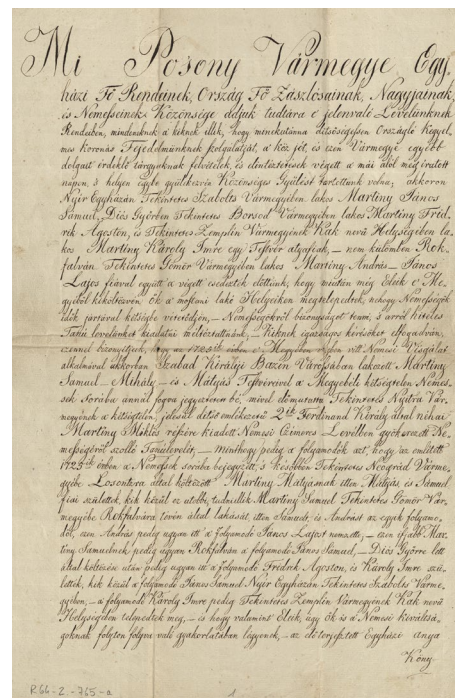 Mi Posony Vármegye Egy
házi Fő Rendeinek, Ország Fő Zászlósainak, Nagyjainak,
és Nemesseinek Közönsége adjuk tudtára e jelenvaló Levelünknek
Rendeiben, mindeneknek a kiknek illik, hogy minekutánna dítsőségessen Országló Kegyel,
mes Koronás Fejedelmünknek szolgálatját, a köz jót, és ezen Vármegyét egyébb
dolgait érdeklő tárgyaknak felvételek, és elintéztetések végett a mái alól megiratott
napon, s helyen egybe gyülekezvén Közönséges Gyűlést tartottunk volna; akkoron
Nyir Egyházán Tekintetes Szabolts Vármegyében lakos Martiny János
Sámuel, Diós Győrben Tekintetes Borsod Vármegyében lakos Martiny Frid,
rik Ágoston, és Tekintetes Zemplin Vármegyének Kak nevű Helységében la,
kos Martiny Károly Imre egy Testvér atyafiak, – nem külömben Rok,
falván Tekintetes Gömör Vármegyében lakos Martiny András – János
Lajos fiával együtt a végett esedeztek előttünk, hogy miután még Eleik e Me,
gyéből kiköltözvén, ők a mostani lakó Helyeiken megtelepedtek, nehogy Nemességök
idők jártával kétségbe vétetődjön, – Nemességökről bizonyságot tenni, s arról hiteles
Tanú levelünket kiadatni méltóztatnánk, – Kiknek igazságos kérésöket elfogadván,
ezennel bizonyítjuk, hogy az 1725ik évben e Megyében vitt Nemesi Visgálat
alkalmával akkorban Szabad Királyi Bazin Városában lakozott Martiny
Samuel – Mihály – és Mátyás Testvéreivel a Megyebeli kétségtelen Neme,
sek Sorába annál fogva jegyeztetett bé, mivel előmutatta Tekintetes Nyitra Vár,
megyének a kétségtelen, jelesül dítső emlékezetű 2ik Ferdinand Király által néhai
Martiny Miklós részére kiadott Nemesi Czímeres Levélben gyökerezett Ne,
mességéről szólló Tanúlevelét, – minthogy pedig a folyamodók azt, hogy az említett
1725ik évben a Nemesek sorába béjegyzett, s későbben Tekintetes Neográd Várme,
gyébe Losontzra által költözött Martiny Mátyásnak ittен Mátyás, és Sámuel
fiai születtek, kik közül ez utóbb, tudniillik Martiny Samuel Tekintetes Gömör Vár,
megyébe Rokfalvára tévén által lakását, itten Sámuelt, és Andrást az egyik folyamo,
dót, ezen András pedig ugyan ott a folyamodó János Lajost nemzette, – ezen ifjabb Mar,
tiny Sámuelnek pedig ugyan Rokfalván a folyamodó János Sámuel, – Diós Győrre lett
által költözése után pedig ugyan itt a folyamodó Fridrik Ágoston, és Károly Imre szü,
lettek, kik közül a folyamodó János Sámuel Nyir Egyházán Tekintetes Szabolts Várme,
gyében, – a folyamodó Károly Imre pedig Tekintetes Zemplin Vármegyének Kak nevű
Helységében telepedtek meg, – és hogy valamint Eleik, úgy ők is a Nemesi kiváltsá,
goknak folyton folyva való gyakorlatában légyenek, – az előterjesztett Egyházi anya
Köny
R66-2-765-a
1